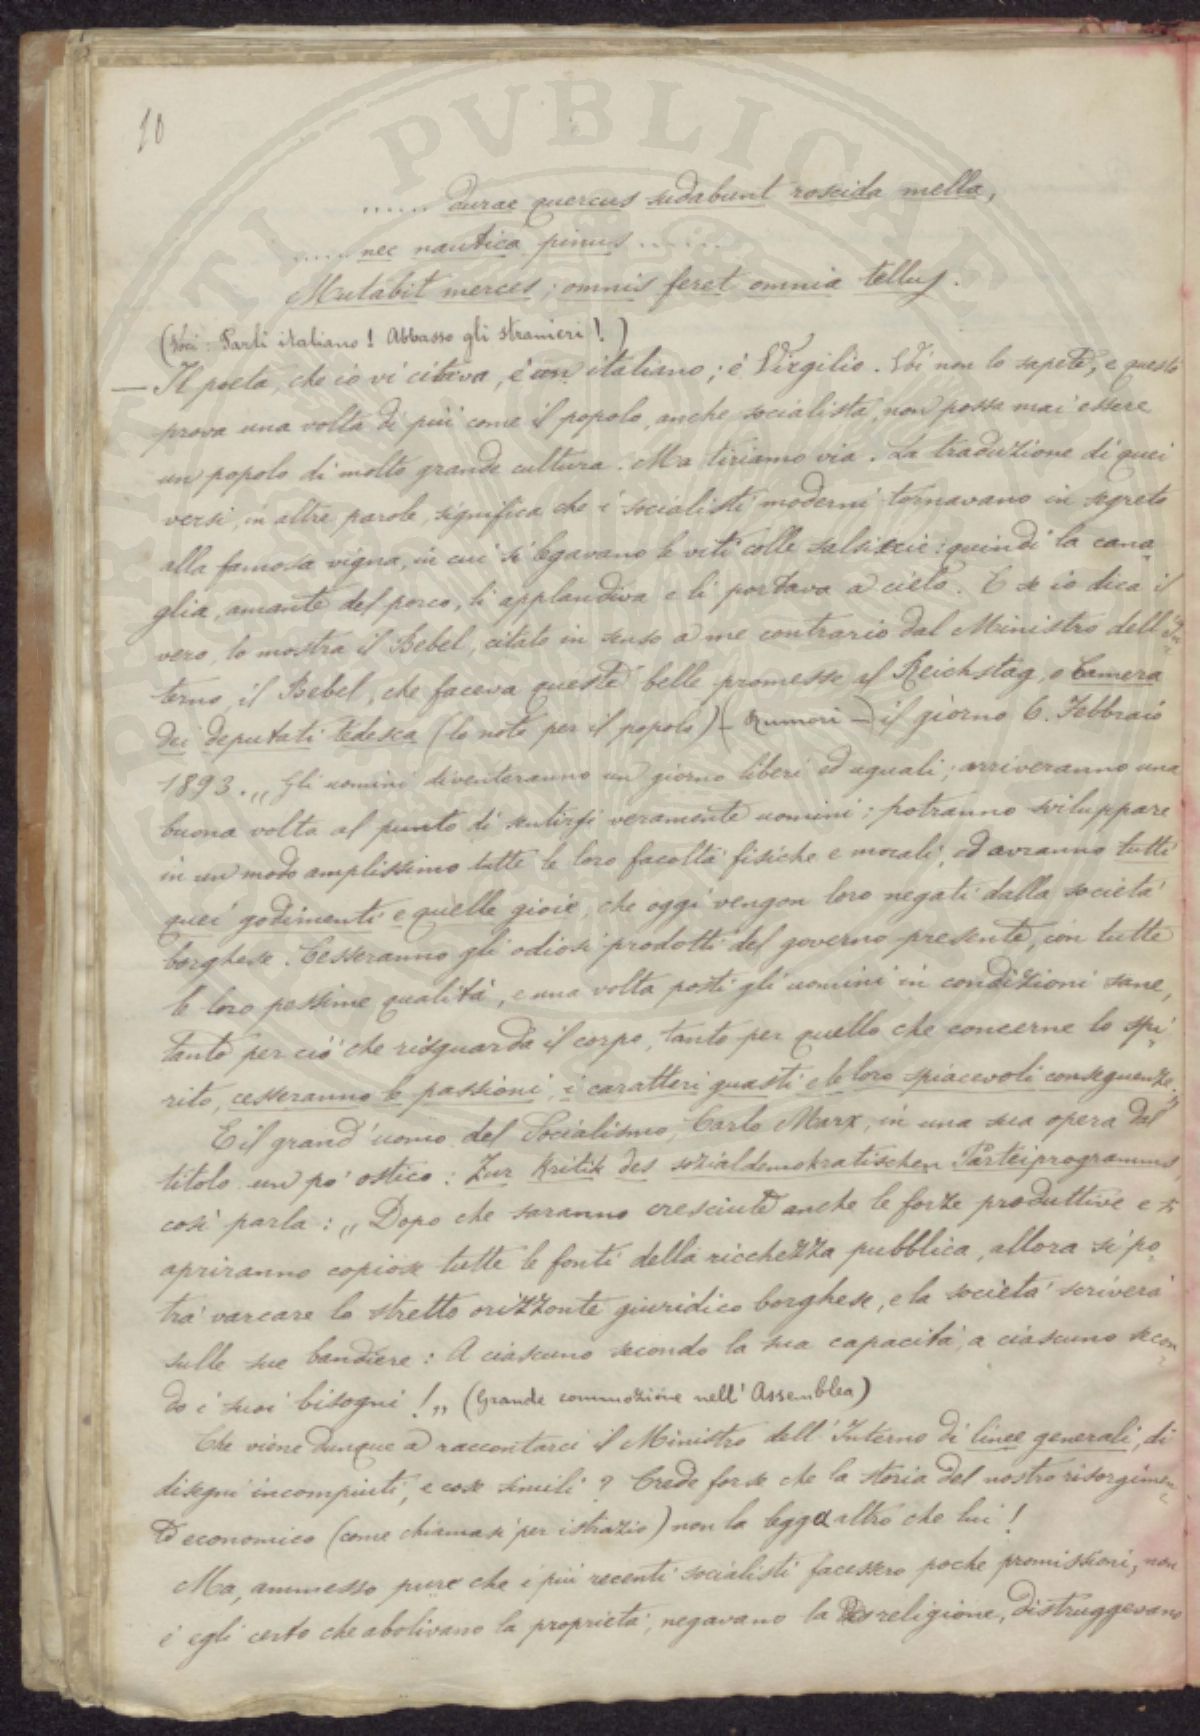 10
...... durae quercus sudabunt roscida mella,
..... nec nautica pinus ......
Mutabit merces; omnis feret omnia tellus.
(Voci: Parli italiano! Abbasso gli stranieri!)
— Il poeta, che io vi citava, è un italiano; è Virgilio. Voi non lo sapete, e questo
prova una volta di più come il popolo, anche socialista, non possa mai essere
un popolo di molto grande cultura. Ma tiriamo via. La traduzione di quei
versi, in altre parole, significa che i socialisti moderni tornavano in segreto
alla famosa vigna, in cui si legavano le viti colle salsiccie: quindi la cana=
glia, amante del porco, li applaudiva e li portava a cielo. E se io dica il
vero, lo mostra il Bebel, citato in senso a me contrario dal Ministro dell'In=
terno, il Bebel, che faceva queste belle promesse al Reichstag, o Camera
dei deputati tedesca (lo noto per il popolo) (— Rumori —) il giorno 6. Febbraio
1893. „ Gli uomini diventeranno un giorno liberi ed uguali; arriveranno una
buona volta al punto di sentirsi veramente uomini; potranno sviluppare
in un modo amplissimo tutte le loro facoltà fisiche e morali, ed avranno tutti
quei godimenti e quelle gioie, che oggi vengon loro negati dalla società
borghese. Cesseranno gli odiosi prodotti del governo presente, con tutte
le loro pessime qualità, e una volta posti gli uomini in condizioni sane,
tanto per ciò che risguarda il corpo, tanto per quello che concerne lo spi=
rito, cesseranno le passioni, i caratteri guasti e le loro spiacevoli conseguenze.„
E il grand'uomo del Socialismo, Carlo Marx, in una sua opera dal
titolo un po' ostico: Zur Kritik des sozialdemokratischen Parteiprogramms,
così parla: „ Dopo che saranno cresciute anche le forze produttive e si
apriranno copiose tutte le fonti della ricchezza pubblica, allora si po=
trà varcare lo stretto orizzonte giuridico borghese, e la società scriverà
sulle sue bandiere: A ciascuno secondo la sua capacità, a ciascuno secon=
do i suoi bisogni!„ (Grande commozione nell'Assemblea)
Che viene dunque a raccontarci il Ministro dell'Interno di linee generali, di
disegni incompiuti, e cose simili? Crede forse che la storia del nostro risorgimen=
to economico (come chiamasi per istrazio) non la legga altro che lui!
Ma, ammesso pure che i più recenti socialisti facessero poche promissioni, non
è egli certo che abolivano la proprietà, negavano la religione, distruggevano